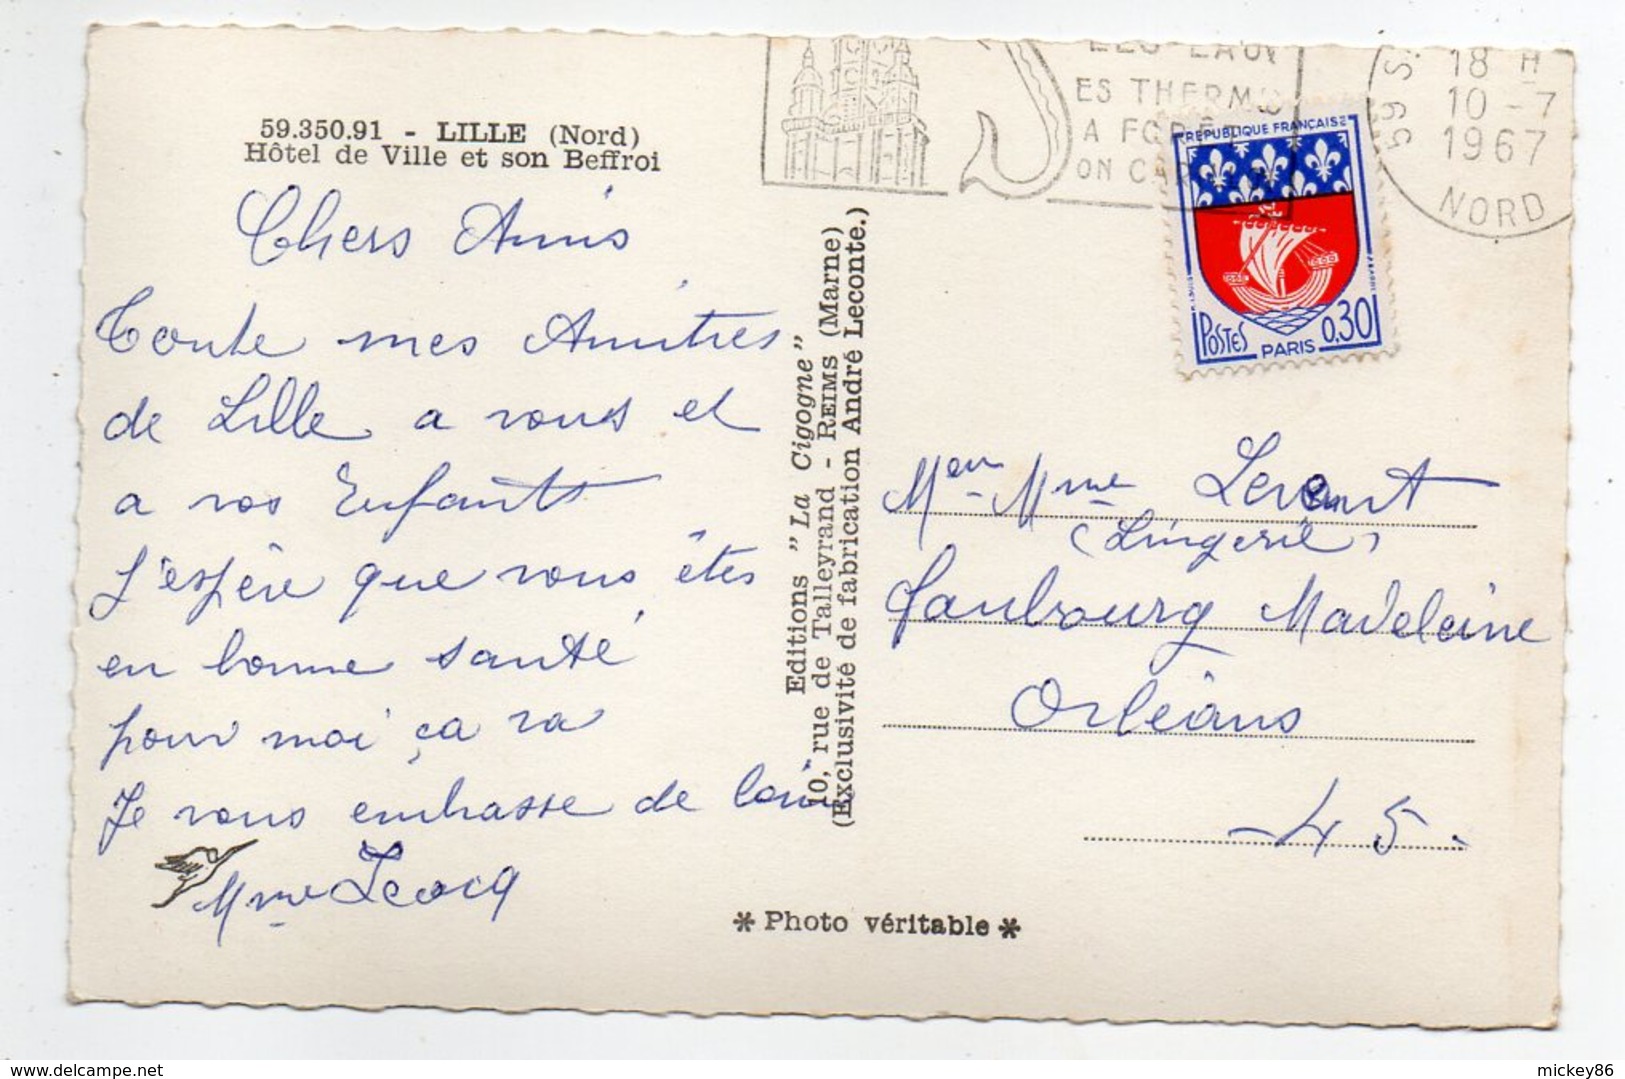 59.350.91 - LILLE (Nord)
Hôtel de Ville et son Beffroi
Chers Amis
Toute mes Amitres
de Lille a vous et
a vos Enfants
J'espère que vous êtes
en bonne santé
pour moi ça va
Je vous embrasse de loin
Mme Lecocq
Editions "La Cigogne"
10, rue de Talleyrand - REIMS (Marne)
(Exclusivité de fabrication André Leconte.)
* Photo véritable *
LES EAUX
ES THERM
A FORÊT
ON CAR
59 S
18 H
10 - 7
1967
NORD
REPUBLIQUE FRANÇAISE
POSTES
PARIS
0,30
Mme
(Lingerie)
faubourg Madeleine
Orléans
- 45.
mickey86
www.delcampe.net